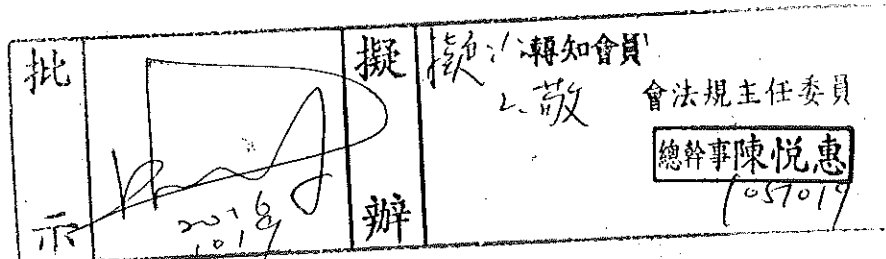 批示
2016
10/19
擬辦
擬：1.轉知會員
2.敬會法規主任委員
總幹事陳悅惠
1051019